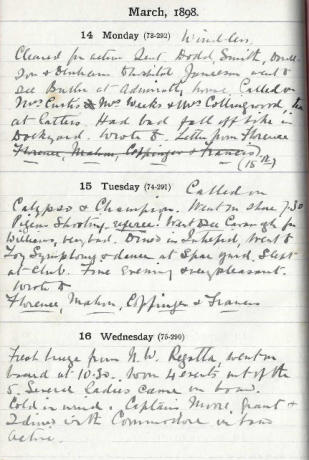 March, 1898.
14 Monday (73-292) Windless
Cleared for action Sent Dodd, Smith,
& Denham went &
see Butler at Admiralty house, Called on
Mrs Curtis & Mrs Weeks & Mrs Collingwood, tea
at Catters. Had bad fall off bike in
Dockyard. Wrote to Letter from Florence
Florence, Mahon, Coppinger & Francis
(15th)
15 Tuesday (74-291) Called on
Calypso & Champion. Went on shore 7.30
Pigeon Shooting, referee. Went see Cavanagh for
Williams, very bad. Dined in Intrepid, Went to
Toy Symphony & dance at Spar yard. Slept
at Club. Fine Evening & very pleasant.
Wrote to
Florence, Mahon, Coppinger & Francis
16 Wednesday (75-290)
Fresh breeze from N.W. Regatta, went on
board at 10.30. Won 4 events out of the
5. Several ladies came on board.
Cold in wind. Captains Moore, Grant &
I dined with Commodore on board
Active.